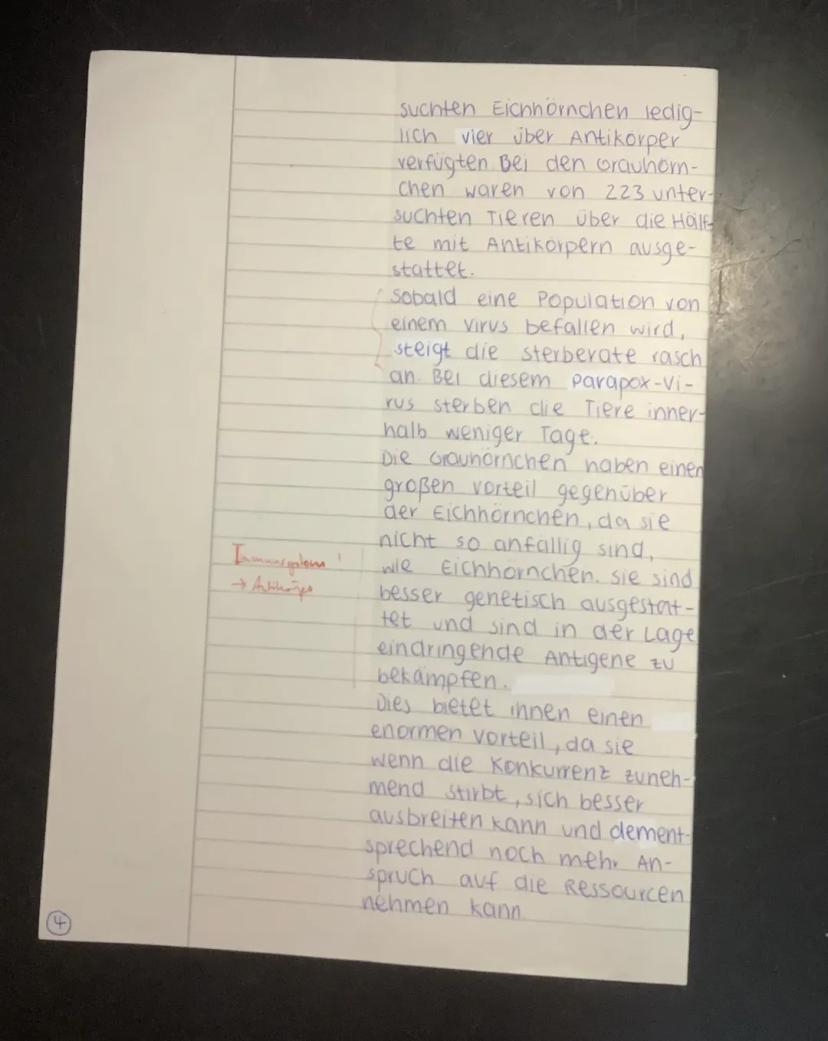 suchten Eichhörnchen ledig-
lich vier über Antikörper
verfügten. Bei den Grauhörn-
chen waren von 223 unter-
suchten Tieren über die Hälf-
te mit Antikörpern ausge-
stattet.
Sobald eine Population von
einem Virus befallen wird,
steigt die Sterberate rasch
an. Bei diesem Parapox-Vi-
rus sterben die Tiere inner-
halb weniger Tage.
Die Grauhörnchen haben einen
großen Vorteil gegenüber
der Eichhörnchen, da sie
nicht so anfällig sind,
Immunsystem !
wie Eichhörnchen. Sie sind
→ Antikörper
besser genetisch ausgestat-
tet und sind in der Lage
eindringende Antigene zu
bekämpfen.
Dies bietet ihnen einen
enormen Vorteil, da sie
wenn die Konkurrenz zuneh-
mend stirbt, sich besser
ausbreiten kann und dement-
sprechend noch mehr An-
spruch auf die Ressourcen
nehmen kann
4